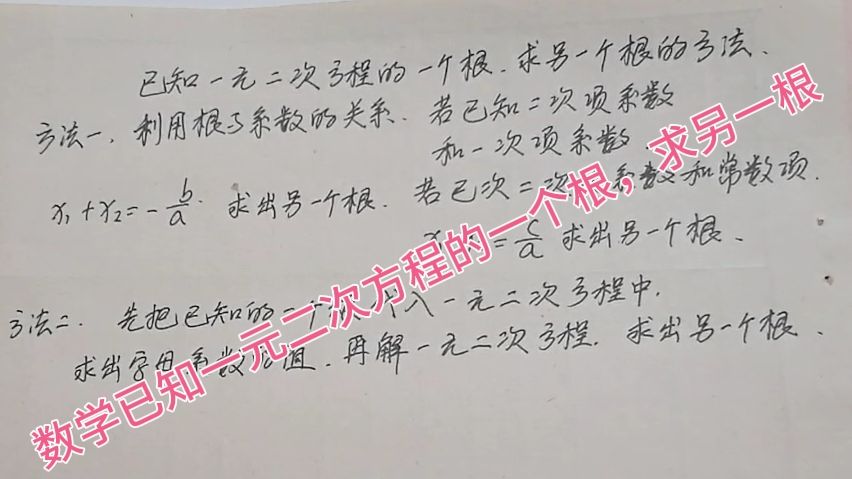 已知一元二次方程的一个根.求另一个根的方法.
方法一.利用根与系数的关系.若已知二次项系数
和一次项系数.
x₁+x₂=-b/a.求出另一个根.若已次二次系数和常数项.
=c/a 求出另一个根、
方法二.先把已知的一个代入一元二次方程中.
求出字母系数值.再解一元二次方程.求出另一个根.
数学已知一元二次方程的一个根,求另一根